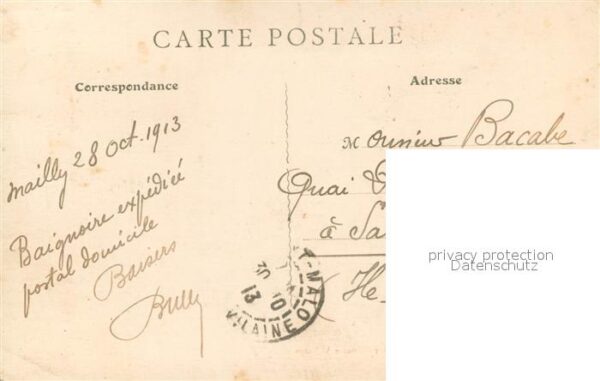 CARTE POSTALE
Correspondance
Adresse
Mailly 28 Oct. 1913
Baignoire expédiée
postal domicile
Baisers
Monsieur Bacabe
Quai
à Sa
(Ile-
T-MALO
30-10
13
VILAINE
privacy protection
Datenschutz